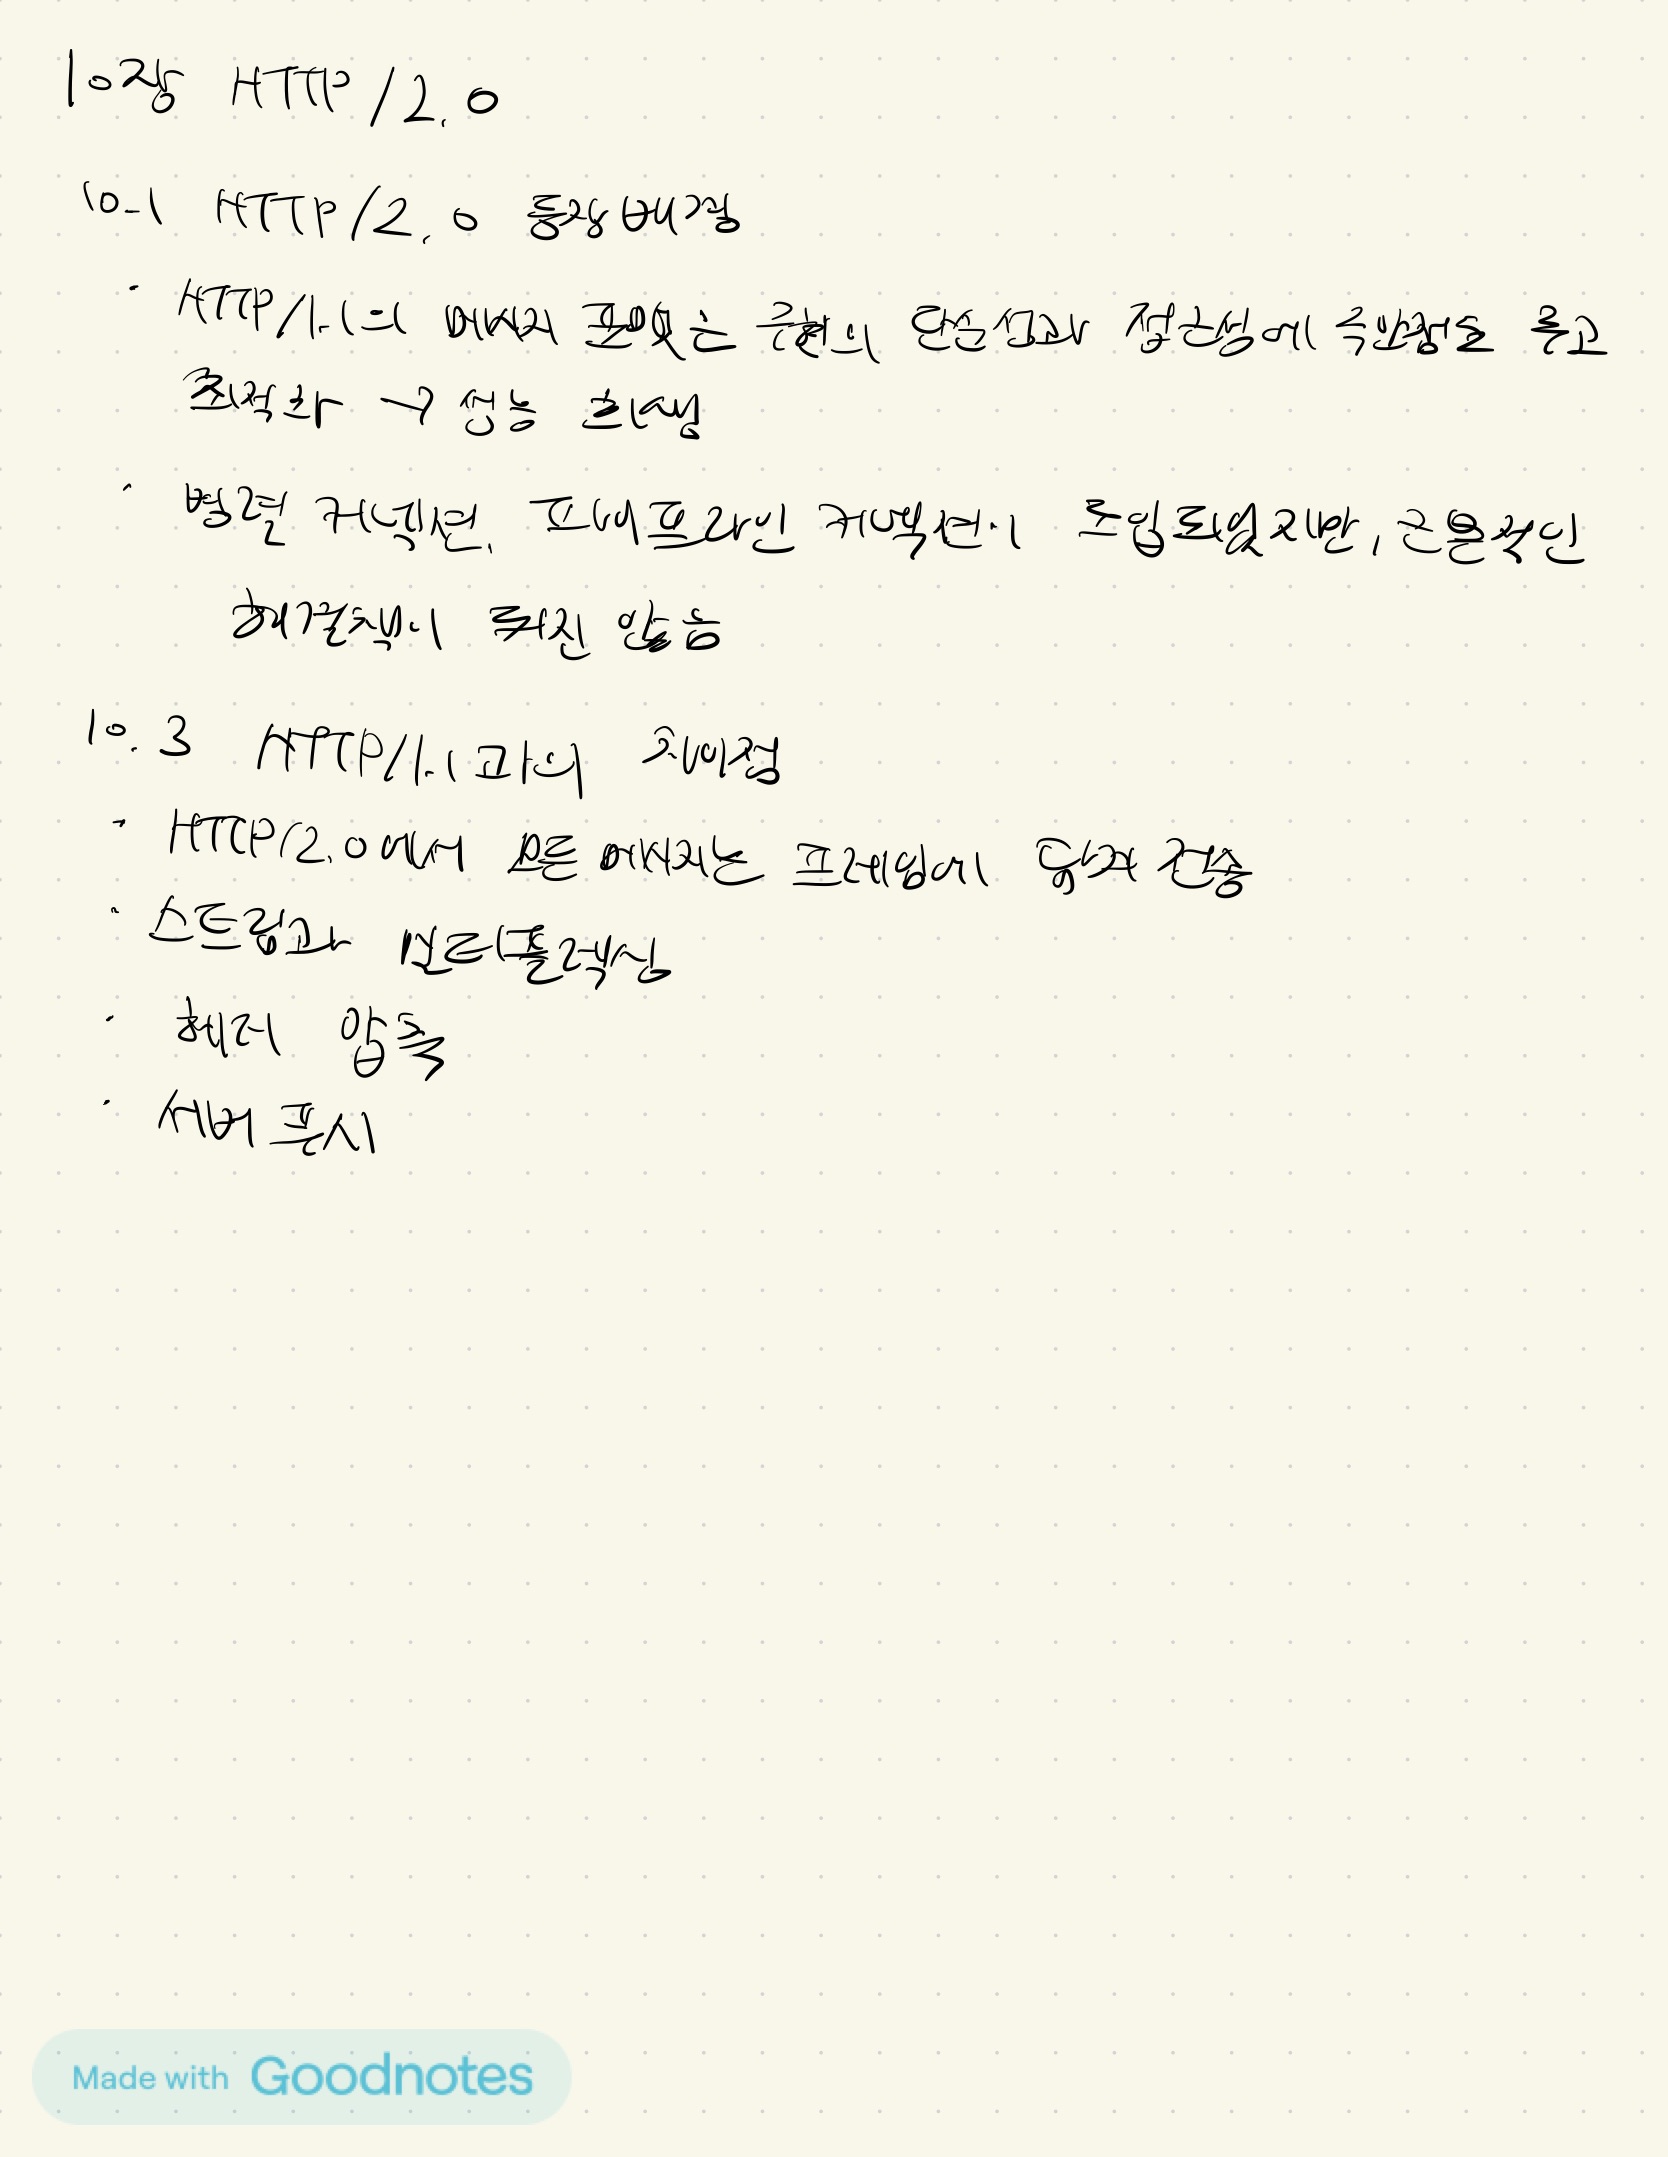 10장 HTTP/2.0
10.1 HTTP/2.0 등장배경
· HTTP/1.1의 메시지 포맷은 구현의 단순성과 접근성에 주안점을 두고
최적화 → 성능 희생
· 병렬 커넥션, 파이프라인 커넥션이 도입되었지만, 근본적인
해결책이 되진 않음
10.3 HTTP/1.1과의 차이점
· HTTP/2.0에서 모든 메시지는 프레임에 담겨 전송
· 스트림과 멀티플렉싱
· 헤더 압축
· 서버 푸시
Made with Goodnotes